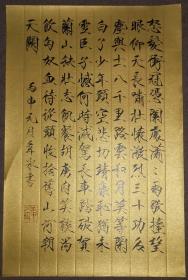 怒髮衝冠憑闌處瀟々雨歇擡望
眼仰天長嘯壯懷激烈三十功名
塵與土八千里路雲和月莫等閒
白了少年頭空悲切靖康恥猶未
雪臣子憾何時滅駕長車踏破賀
蘭山缺壯志飢餐胡虜肉笑談渴
飲匈奴血待從頭收拾舊山河朝
天闕
丙申元月書